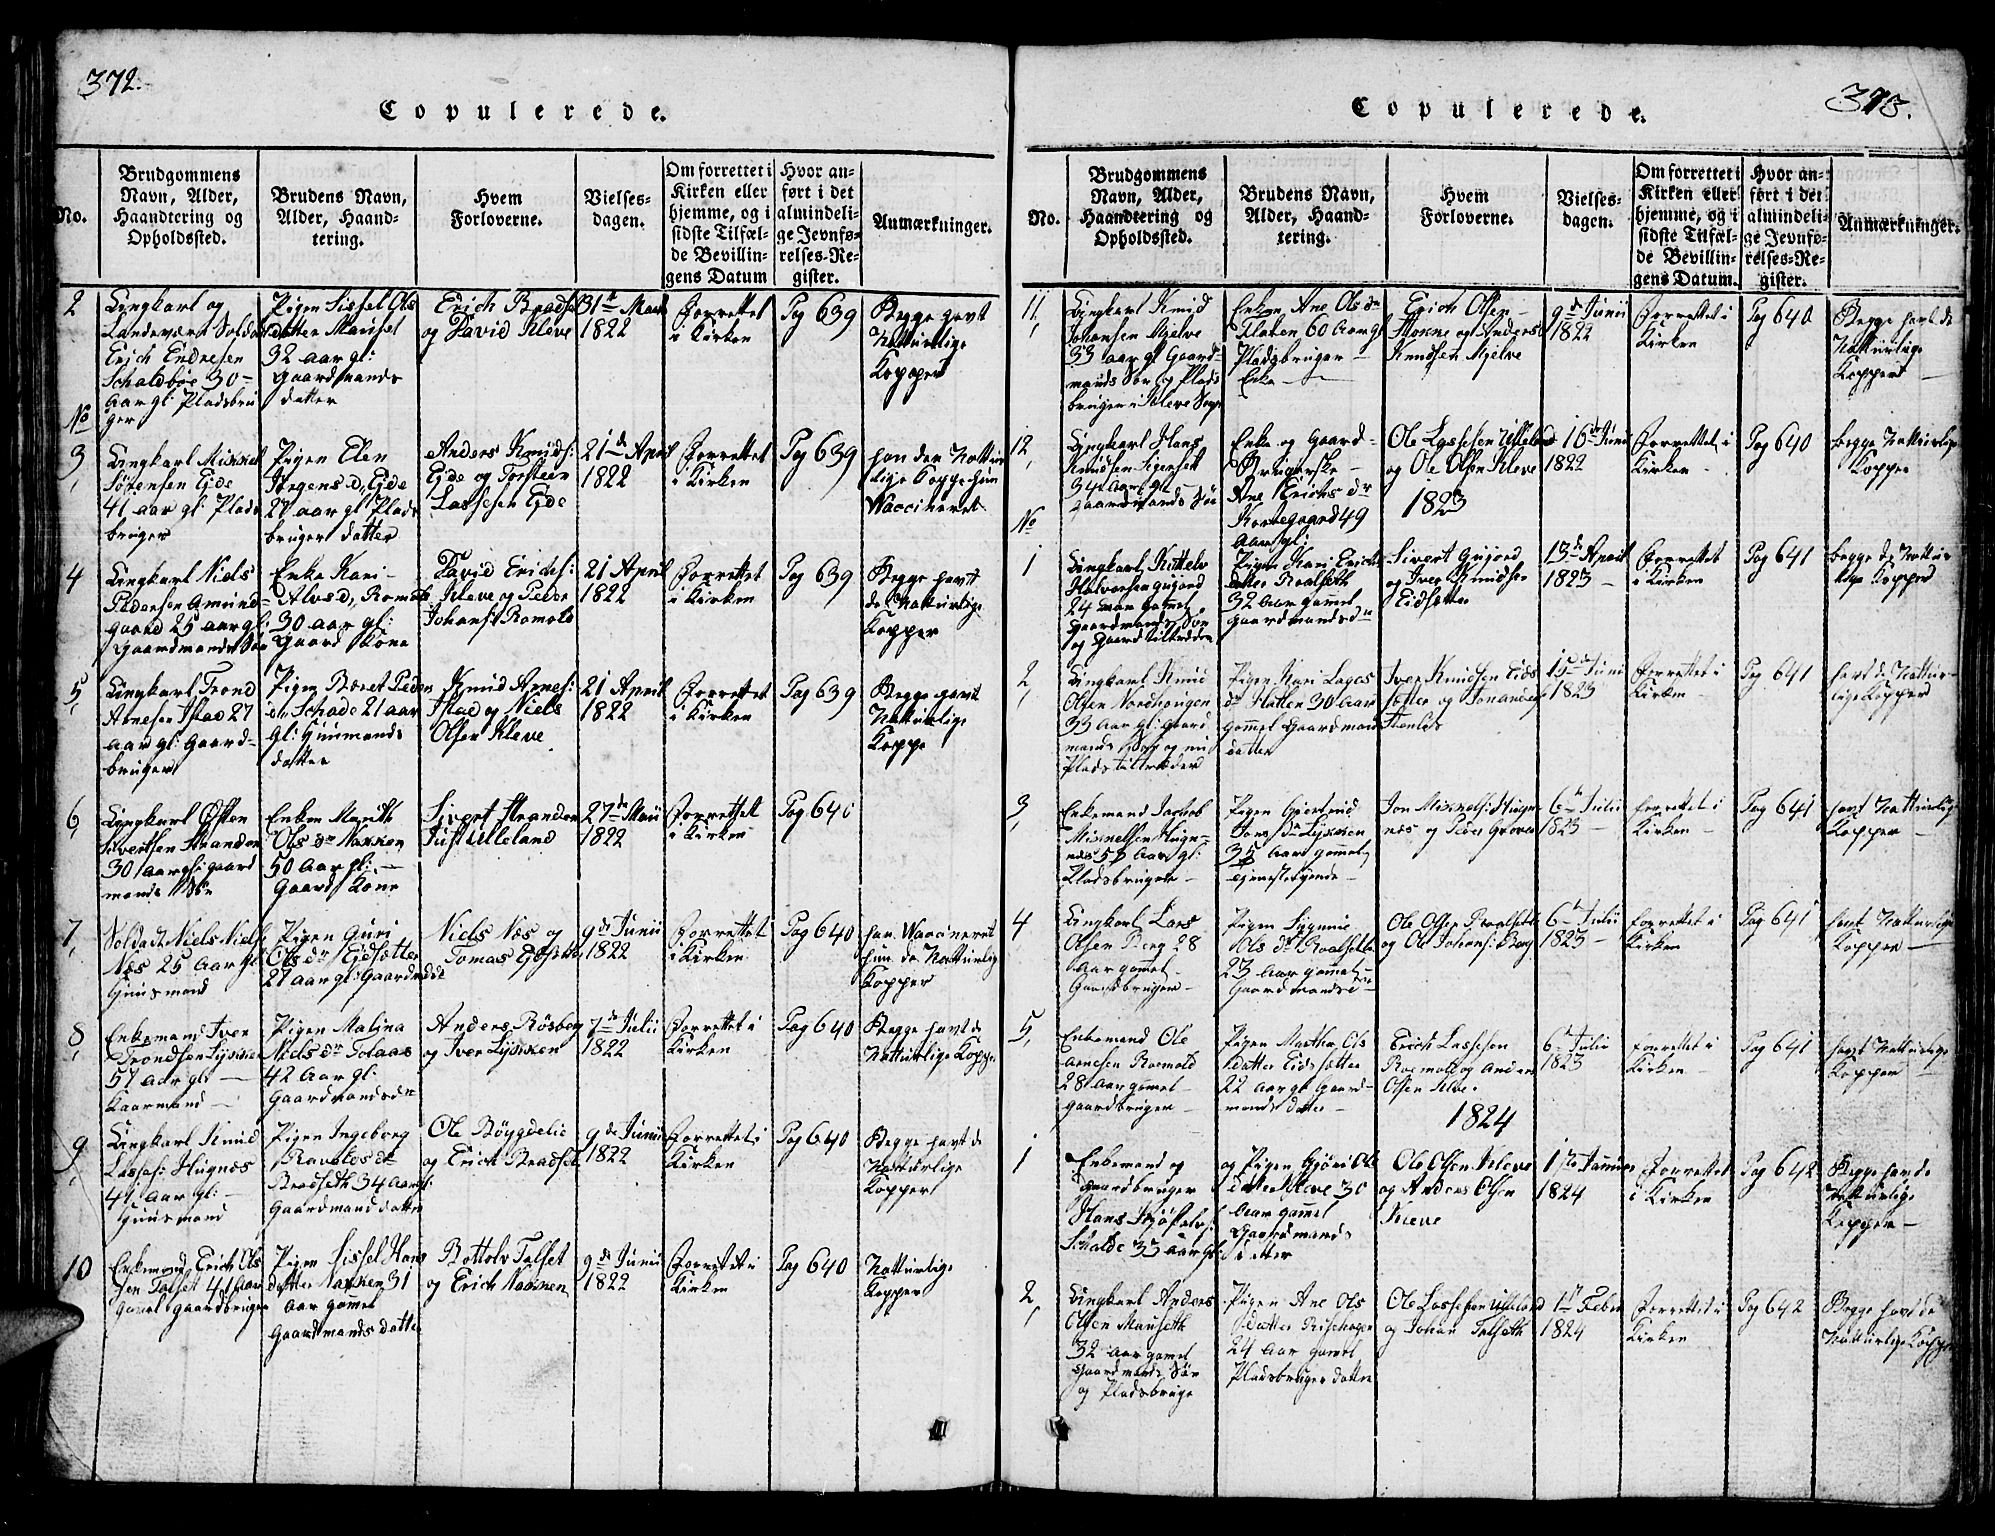 372.
Copulerede.
No.
Brudgommens
Navn, Alder,
Haandtering og
Opholdssted.
Brudens Navn,
Alder, Haand-
tering.
Hvem
Forloverne.
Vielses-
dagen.
Om forrettet i
Kirken eller
hjemme, og i
sidste Tilfæl-
de Bevillin-
gens Datum
Hvor an-
ført i det
almindeli-
ge Jevnfø-
relses-Re-
gister.
Anmærkninger.
2
Ungkarl og
Landeværn Soldat
Erich Endresen
Schaldbøe 30
aar gl: Pladsbru
ger
Pigen Sissel Ols
datter Mauset
32 aar gl:
Gaardmands
datter
Erich Bradset
og David Kleve
31te Mart
1822
Forrettet
i Kirken
Pag 639
Begge havt
Naturlige
Kopper
No
3,
Ungkarl Mikkel
Sørensen Eide
41 aar gl: Plads
bruger
Pigen Elen
Jørgens d. Eide
27 aar gl Plads
bruger datter
Anders Knuds:
Eide og Torsteen
Lassesen Eide
21de April
1822
Forrettet
i Kirken
Pag 639
han den Nattur
lige Koppe hun
Waccineret
4
Ungkarl Niels
Pedersen Amund
gaard 25 aar gl:
Gaardmands Søn
Enke Kari
Alvs d. Romols
30 aar gl:
Gaard Kone
David Erichs:
Kleve og Peder
Johans: Romols
21 April
1822
Forrettet
i Kirken
Pag 639
Begge havt
de Natturlige
Kopper
5,
Ungkarl Trond
Arnesen Stad 27
aar gl: Gaard-
bruger
Pigen Beret Peder
d. Schade 21 aar
gl: Huusmands
datter
Knud Arnes:
Stad og Niels
Olsen Kleve
21 April
1822
Forrettet
i Kirken
Pag 639
Begge havt
Naturlige
Koppe
6,
Ungkarl Østen
Sivertsen Stranden
30 aar gl: gaard
mands Søn
Enken Marith
Ols dr Næssen
50 Aar gl:
Gaard Kone
Sivert Stranden
Just Ulleland
27de Maii
1822
Forrettet
i Kirken
Pag 640
7,
Soldat Niels Niels
Næs 25 Aar gl
Huusmand
Pigen Guri
Ols dr Eidsætter
27 aar gl: Gaardmdd
Niels Næs og
Tomas Eidsætte
9de Junii
1822
Forrettet
i Kirken
Pag 640
han Waccineret
hun de Natturlig
Kopper
8,
Enkemand Iver
Trondsen
57 Aar gl:
Kaarmand
Pigen Malina
Niels dr Tolaas
42 Aar gl:
Gaardmandsdr
Anders Røsberg
og Iver
7de Julii
1822
Forrettet i
Kirken
Pag 640
Begge havt de
Natturlige Kopper
9,
Ungkarl Knud
Lasses: Hugnes
41 Aar gl:
Huusmand
Pigen Ingeborg
Bradseth 34 Aar
Gaardmand datter
Ole Bøygdelie
og Erich Bradset
9de Junii
1822
Forrettet i
Kirken
Pag 640
Begge havt de
Natturlige
Kopper
10
Enkemand Erich Ols
sen Talset 41 Aar
Gamel gaardbruger
Pigen Sissel Hans
datter Næssen 31
Aar gammel
Gaardmands datter
Bottolv Talset
og Erich Næssen
9de Junii
1822
Forrettet i
Kirken
Pag 640
Natturlige
Kopper
373.
Copulerede.
No.
Brudgommens
Navn, Alder,
Haandtering og
Opholdssted.
Brudens Navn,
Alder, Haand-
tering.
Hvem
Forloverne.
Vielses-
dagen.
Om forrettet i
Kirken eller
hjemme, og i
sidste Tilfæl-
de Bevillin-
gens Datum.
Hvor an-
ført i det
almindeli-
ge Jevnfø-
relses-Re-
gister.
Anmærkninger.
11,
Ungkarl Knud
Johansen Mjelve
33 aar gl Gaard-
mands Søn og Plads
bruger i Kleve Sogn
Enken Ane Ols dr
Flaten 60 Aar gl
Pladsbruger
Enke
Erich Olsen
Stonne og Anders
Knudsen Mjelve
9de Junii
1822
Forrettet i
Kirken
Pag 640
Begge havt de
Natturlige
Kopper
12,
Ungkarl Hans
Knudsen
34 Aar gl
gaardmands Søn
Enke og Gaard-
Brugerske
Ane Erichs dr
Kortgaard 49
Aar gl:
Ole Lassesen Ulleland
og Ole Olsen Kleve
16de Junii
1822
Forrettet i
Kirken
Pag 640
begge Natturlige
Kopper
1823
No
1
Ungkarl Kittel
Halvorsen Gujord
24 aar Gamel
Gaardmands Søn
og Gaard tiltræden
Pigen Kari Erichs
datter Roalseth
32 Aar gammel
Gaardmandsdr
Sivert Gujord
og Iver Knudsen
Eidsætter
13de April
1823
Forrettet
i Kirken
Pag 641
begge de Nattur
lige Kopper
2,
Ungkarl Knud
Olsen Nordhougen
33 Aar gl: gaard
mands Søn og nu
Plads tiltræder
Pigen Kari Lages
dr Hatten 30 Aar
gammel Gaardmand
datter
Iver Knudsen Eids
sætter og Jonanders
Stenlos
15de Juni
1823
Forrettet i
Kirken
Pag 641
havt de Nattur-
lige Kopper
3,
Enkemand Jacob
Mikkelsen Hugn-
nes 53 Aar gl:
Pladsbruger
Pigen Giertrud
Jons dr
35 Aar gammel
tjenestetyende
Jon Mikkels: Hugn
nes og Peder Groven
6te Julii
1823
forrettet i
Kirken
Pag 641
havt Natturlige
Kopper
4
Ungkarl Lars
Olsen Berg 28
Aar gammel
Gaardbruger
Pigen Sygnne
Ols dr Roalseth
23 Aar gammel
Gaardmandsdr
Ole Olsen Roalseth
og Ole Johans: Berg
6te Julii
1823
forrettet i
Kirken
Pag 641
havt Natturlige
Kopper
5,
Enkemand Ole
Arnesen Roemold
28 Aar gamel
gaardbruger
Pigen Martha Ols
datter Eidssætter
22 Aar gl Gaard-
mands datter
Erich Lassesen
Roemold og Anders
Olsen Kleve.
6te Julii
1823
forrettet i
Kirken
Pag 641
havt Natturlige
Kopper
1824
1
Enkemand og
gaardbruger
Hans
Schalde 33 Aar gl:
og Pigen Gjøri Ols
datter Kleve 30
Aar gammel
Gaardmands
datter
Ole Olsen Kleve
og Anders Olsen
Kleve
1ste Januar
1824
Forrettet
i Kirken
Pag 642
Begge havde
Natturlige
Kopper
2,
Ungkarl Anders
Olsen Mauseth
32 Aar gamel
Gaardmands Søn
og Pladsbruge
Pigen Ane Ols
datter Rishagen
24 Aar gamel
Pladsbruger datter
Ole Lassesen Ulleland
og Johan Talseth
1ste Feber
1824
Forrettet i
Kirken
Pag 642
Begge havt de
Natturlige Kopper